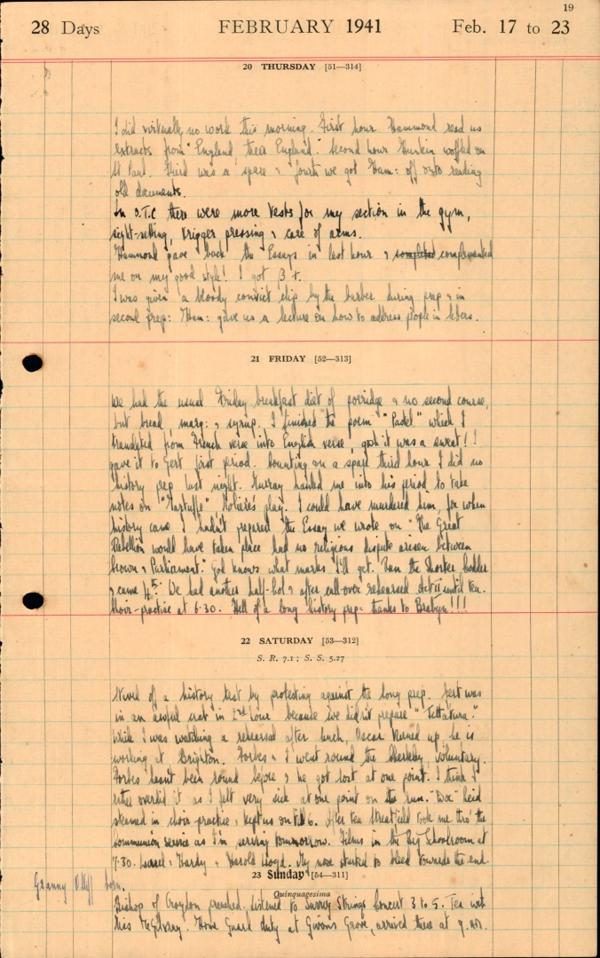 19
28 Days FEBRUARY 1941 Feb. 17 to 23
20 THURSDAY [51—314]
I did virtually no work this morning. First hour Hammond read us
extracts from "England, their England". Second hour waffled on
St Paul. Third was a spare & fourth we got Ham: off onto reading
old documents.
In O.T.C there were more tests for my section in the gym,
sight-setting, trigger pressing & care of arms.
Hammond gave back the Essays in last hour & complimented
me on my good style! I got B+.
I was given a bloody convict clip by the barber during prep & in
second prep: Ham: gave us a lecture on how to address people in letters.
21 FRIDAY [52—313]
We had the usual Friday breakfast diet of porridge & no second course,
but bread, marg: & syrup. I finished the poem "Padel" which I
translated from French verse into English verse, gosh it was a sweat!!
gave it to Gert first period. Counting on a spare third hour I did no
history prep last night. Murray hauled me into his period to take
notes on "Tartuffe", Molière's play. I could have murdered him, for when
history came I hadn't prepared the Essay we wrote on "The Great
Rebellion would have taken place had no religious dispute arisen between
Crown & Parliament." God knows what marks I'll get. Ran the Shorter
& came 4th. We had another half-hol & after call-over rehearsed Act II until tea.
Choir-practice at 6.30. Hell of a long history prep: thanks to !!!
22 SATURDAY [53—312]
S. R. 7.1 ; S. S. 5.27
of a history test by protesting against the long prep. Gert was
in an awful in 2nd hour because we didn't prepare
While I was watching a rehearsal after lunch, Oscar turned up, he is
working at Brighton. Forbes & I went round the voluntary.
Forbes hasn't been round before & he got lost at one point. I think I
rather overdid it as I felt very sick at one point on the run. "Doc"
in choir practice & kept us on till 6. After tea Streatfeild took me thro' the
Communion service as I'm serving tomorrow. Films in the Big Schoolroom at
7.30. Laurel & Hardy & Harold Lloyd. My nose started to bleed towards the end.
23 Sunday [54—311]
Granny born.
Quinquagesima
Bishop of Croydon preached. Listened to Surrey Strings Concert 3 to 5. Tea with
Miss McGilvray. Home Guard duty at Givons Grove, arrived there at 9.